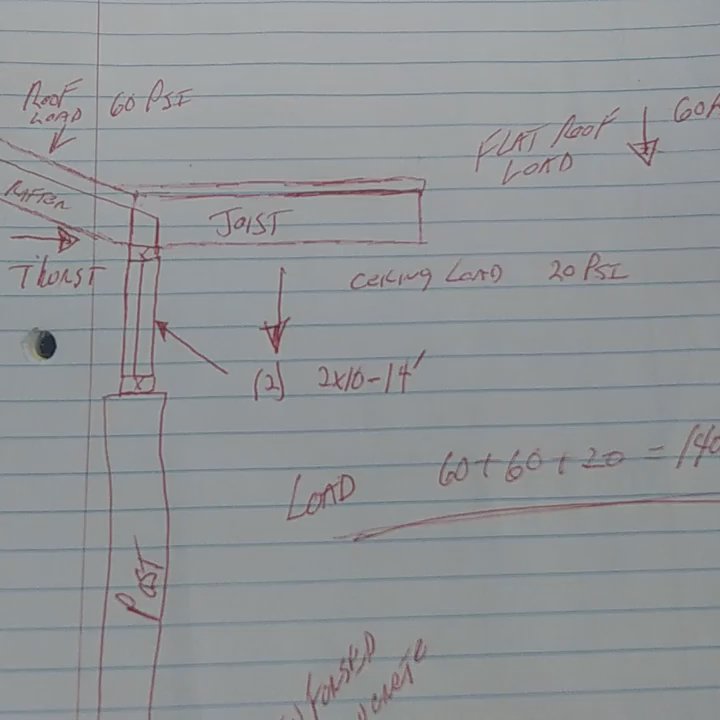 ROOF
LOAD
60 PSI
FLAT ROOF
LOAD
60
RAFTER
JOIST
THORST
CEILING LOAD 20 PSI
(2) 2x10-14'
LOAD 60+60+20 = 140
POST